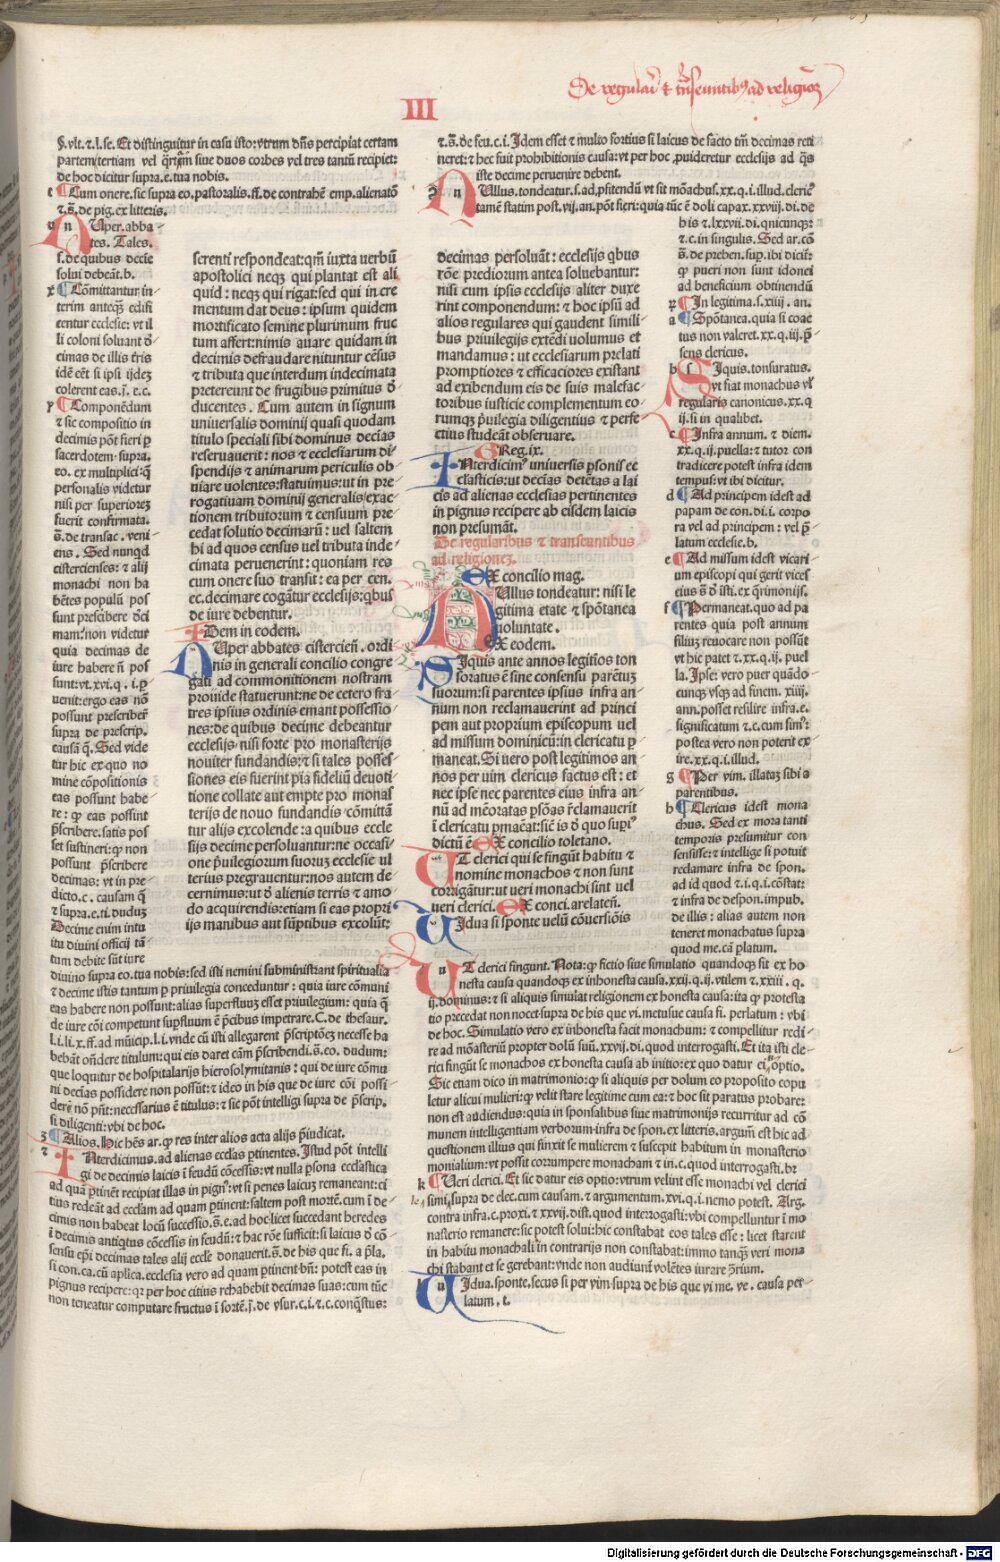 De regulari⁹ ⁊ trãseuntib⁹ ad religionẽ
III
§. vlt. ⁊ l. se. Et distinguitur in casu isto: vtrum dñs percipiat certam
partem tertiam vel q̈rtãm siue duos corbes vel tres tantũ recipiet:
de hoc dicitur supra. e. tua nobis.
t ¶ Cum onere. sic supra eo. pastoralis. ff. de contrahẽ. emp. alienatõ
⁊.s̃. de pig. ex litteris.
u Nuper. abba
tes. Tales.
s. de quibus decie
solui debeãt. b.
x ¶ Cõmittantur in
terim anteqȝ edifi
centur ecclesie: vt il
li coloni soluant d̃
cimas de illis tr̃is
idẽ eẽt si ipsi ijdeȝ
colerent eas. j. e. c.
y ¶ Componẽdum
⁊ sic compositio in
decimis põt fieri p̱
sacerdotem. supra.
eo. ex multiplici: q̃
personalis videtur
nisi per superioreȝ
fuerit confirmata.
s̃. de transac. veni
ens. Sed nunqd
cistercienses: ⁊ alij
monachi non ha
bẽtes populũ pos
sunt prescibere d̃ci
mam: non videtur
quia decimas de
iure habere ñ pos
sunt: vt. xvi. q. i. p̱
uenit: ergo eas nõ
possunt prescriber̃
supra de prescrip.
causã q̃. Sed vide
tur hic ex quo no
mine cõpositionis
eas possunt habe
re: ꝙ eas possint
p̃scribere. satis pos
set sustineri: ꝙ non
possunt p̃scribere
decimas: vt in pre
dicto. c. causam q̃
⁊ supra. e. ti. duduȝ
Decime enim intu
itu diuini officij tã
tum debite sũt iure
diuino supra eo. tua nobis: sed isti nemini subministrant spiritualia
⁊ decime istis tantum p̱ priuilegia conceduntur: quia iure cõmuni
eas habere non possunt: alias superfluuȝ esset priuilegium: quia q̃
de iure cõi competunt sup̱fluum ẽ p̃cibus impetrare. C. de thesaur.
l. i. li. x. ff. ad mũicip. l. i. vnde cũ isti allegarent p̃scriptõeȝ necesse ha
bebãt oñdere titulum: qui eis daret cãm p̃scribendi. s̃. eo. dudum:
que loquitur de hospitalarijs hierosolymitanis: qui de iure cõmu
ni decĩas possidere non possũt: ⁊ ideo in his que de iure cõi possi
derẽ nõ p̃nt: necessarius ẽ titulus: ⁊ sic põt intelligi supra de p̃scrip.
si diligenti: vbi de hoc.
ȝ ¶ Alios. Hic hẽs ar. ꝙ res inter alios acta alijs p̃iudicat.
⁊ Interdicimus. ad alienas eccl̃as p̱tinentes. Istud põt intelli
gi de decimis laicis ĩ feudũ cõcessis: vt nulla p̱sona eccl̃astica
ad quã p̱tinẽt recipiat illas in pigñ: vt si penes laicuȝ remaneant: ci
tius redeãt ad eccl̃am ad quam p̱tinent: saltem post mortẽ. cum ĩ de
cimis non habeat locũ successio. s̃. e. ad hoc. licet succedant heredes
ĩ decimis antiqtus cõcessis in feudũ: ⁊ hac rõe sufficit: si laicus d̃ cõ
sensu ep̃i decimas tales alij eccl̃e donauerit. s̃. de his que fi. a p̃la.
si con. ca. cũ aplica. ecclesia vero ad quam p̱tinent bñ: potest eas in
pignus recipere: qr per hoc citius rehabebit decimas suas: cum tũc
non teneatur computare fructus ĩ sortẽ. j. de vsur. c. i. ⁊. c. conq̃stus:
serenti respondeat: qm̃ iuxta verbũ
apostolici neqȝ qui plantat est ali
quid: neqȝ qui rigat: sed qui in cre
mentum dat deus: ipsum quidem
mortificato semine plurimum fruc
tum affert: nimis auare quidam in
decimis defraudare nituntur cẽsus
⁊ tributa que interdum indecimata
pretereunt de frugibus primitus d̃
ducentes. Cum autem in signum
uniuersalis dominij quasi quodam
titulo speciali sibi dominus decĩas
reseruauerit: nos ⁊ ecclesiarum di
spendijs ⁊ animarum periculis ob
uiare uolentes: statuimus: ut in pre
rogatiuam dominij generalis: exac
tionem tributorum ⁊ censuum pre
cedat solutio decimarũ: uel saltem
hi ad quos census uel tributa inde
cimata peruenerint: quoniam res
cum onere suo transit: ea per cen.
ec. decimare cogãtur ecclesijs: qbus
de iure debentur.
Idem in eodem.
Nuper abbates cistercieñ. ordi
nis in generali concilio congre
gati ad commonitionem nostram
prouide statuerunt: ne de cetero fra
tres ipsius ordinis emant possessio
nes: de quibus decime debeantur
ecclesijs nisi forte pro monasterijs
nouiter fundandis: ⁊ si tales posses
siones eis fuerint pia fideliũ deuoti
tione collate aut empte pro monas
terijs de nouo fundandis cõmittã
tur alijs excolende: a quibus eccle
sijs decime persoluantur: ne occasi
one p̃uilegiorum suoruȝ ecclesie ul
terius pregrauentur: nos autem de
cernimus: ut d̃ alienis terris ⁊ amo
do acquirendis: etiam si eas propri
ijs manibus aut sũptibus excolũt:
⁊.s̃. de feu. c. i. Idem esset ⁊ multo fortius si laicus de facto tm̃ decimas reti
neret: ⁊ hec fuit prohibitionis causa: vt per hoc ꝓuideretur ecclesijs ad q̃s
iste decime peruenire debent.
Nullus. tondeatur. s. ad ꝓfitendũ vt sit mõachus. xx. q. i. illud. cleric⁹
tamẽ statim post. vij. an. põt fieri: quia tũc ẽ doli capax. xxviij. di. de
his ⁊ lxxvij. di. qnicunqȝ:
⁊.c. in singulis. Sed ar. cõ
s̃. de preben. sup. ibi dicit:
ꝙ pueri non sunt idonei
ad beneficium obtinendũ
¶ In legitima. s. xiiij. an.
a ¶ Spõtanea. quia si coac
tus non valeret. xx. q. iij. p̃
sens clericus.
b Siquis. tonsuratus.
vt fiat monachus vl̃
regularis canonicus. xx. q
ij. si in qualibet.
c ¶ Infra annum. ⁊ diem.
xx. q. ij. puella: ⁊ tutor con
tradicere potest infra idem
tempus: vt ibi dicitur.
d ¶ Ad principem idest ad
papam de con. di. i. corpo
ra vel ad principem: vel p̃
latum ecclesie. b.
e ¶ Ad missum idest vicari
um episcopi qui gerit vices
eius s̃ d̃ isti. ex q̃rimonijs.
f ¶ Permaneat. quo ad pa
rentes quia post annum
filiuȝ reuocare non possũt
vt hic patet ⁊. xx. q. ij. puel
la. Ipse: vero puer quãdo
cunqȝ vsqȝ ad finem. xiiij.
ann. posset resilire infra. e.
significatum ⁊. c. cum simȝ:
postea vero non poterit ex
ire. xx. q. i. illud.
g ¶ Per vim. illataȝ sibi a
parentibus.
h ¶ Clericus idest mona
chus. Sed ex mora tanti
temporis presumitur con
sensisse: ⁊ intellige si potuit
reclamare infra de spon.
ad id quod ⁊. i. q. i. cõstat:
⁊ infra de despon. impub.
de illis: alias autem non
teneret monachatus supra
quod me. cã platum.
decimas persoluãt: ecclesijs qbus
rõe prediorum antea soluebantur:
nisi cum ipsis ecclesijs aliter duxe
rint componendum: ⁊ hoc ipsũ ad
alios regulares qui gaudent simili
bus priuilegijs extẽdi uolumus et
mandamus: ut ecclesiarum prelati
promptiores ⁊ efficaciores existant
ad exibendum eis de suis malefac
toribus iusticie complementum eo
rumqȝ p̃uilegia diligentius ⁊ perfe
ctius studeãt obseruare.
Greg. ix.
Interdicim⁹ uniuersis p̱sonis ec
clasticis: ut decĩas detẽtas a lai
cis ad alienas ecclesias pertinentes
in pignus recipere ab eisdem laicis
non presumãt.
De regularibus ⁊ transeuntibus
ad religioneȝ.
Ex concilio mag.
Nullus tondeatur: nisi le
gitima etate ⁊ spõtanea
uoluntate.
Ex eodem.
Siquis ante annos legitĩos ton
soratus ẽ sine consensu parẽtuȝ
suorum: si parentes ipsius infra an
num non reclamauerint ad princi
pem aut proprium episcopum uel
ad missum dominicũ: in clericatu p̱
maneat. Si uero post legitimos an
nos per uim clericus factus est: et
nec ipse nec parentes eius infra an
nũ ad mẽoratas p̱sõas r̃clamauerit
ĩ clericatu p̱maẽat: sic̃ is d̃ quo supi⁹
dictũ ẽ. Ex concilio toletano.
Ut clerici qui se fingũt habitu ⁊
nomine monachos ⁊ non sunt
corrigãtur: ut ueri monachi sint uel
ueri clerici. Ex conci. arelateñ.
Uidua si sponte uelũ cõuersiõis
i Ut clerici fingunt. Nota: ꝙ fictio siue simulatio quandoqȝ sit ex ho
nesta causa quandoqȝ ex inhonesta causa. xxij. q. ij. vtilem ⁊. xxiii. q.
ij. dominus: ⁊ si aliquis simulat religionem ex honesta causa: ita ꝙ protesta
tio precedat non nocet: supra de his que vi. metusue causa fi. perlatum: vbi
de hoc. Simulatio vero ex inhonesta facit monachum: ⁊ compellitur redi
re ad mõasteriũ propter dolũ suũ. xxvij. di. quod interrogasti. Et ita isti cle
rici fingũt se monachos ex honesta causa ab initio: ex quo datur ei optio.
Sic etiam dico in matrimonio: ꝙ si aliquis per dolum eo proposito copu
letur alicui mulieri: ꝙ velit stare legitime cum ea: ⁊ hoc sit paratus probare:
non est audiendus: quia in sponsalibus siue matrimonijs recurritur ad cõ
munem intelligentiam verborum. infra de spon. ex litteris. argum̃ est hic ad
questionem illius qui finxit se mulierem ⁊ suscepit habitum in monasterio
monialium: vt possit corrumpere monacham ⁊ in. c. quod interrogasti. br̃
k ¶ Ueri clerici. Et sic datur eis optio: vtrum velint esse monachi vel clerici
simi. supra de elec. cum causam. ⁊ argumentum. xvi. q. i. nemo potest. Arg.
contra infra. c. proxi. ⁊ xxvij. dist. quod interrogasti: vbi compelluntur ĩ mo
nasterio remanere: sic potest solui: hic constabat eos tales esse: licet starent
in habitu monachali in contrarijs non constabat: immo tanqȝ veri mona
chi stabant et se gerebant: vnde non audiunt̃ volẽtes iurare ɔ̃rium.
l Uidua. sponte. secus si per vim supra de his que vi me. ve. causa per
latum. t.
Digitalisierung gefördert durch die Deutsche Forschungsgemeinschaft - DFG